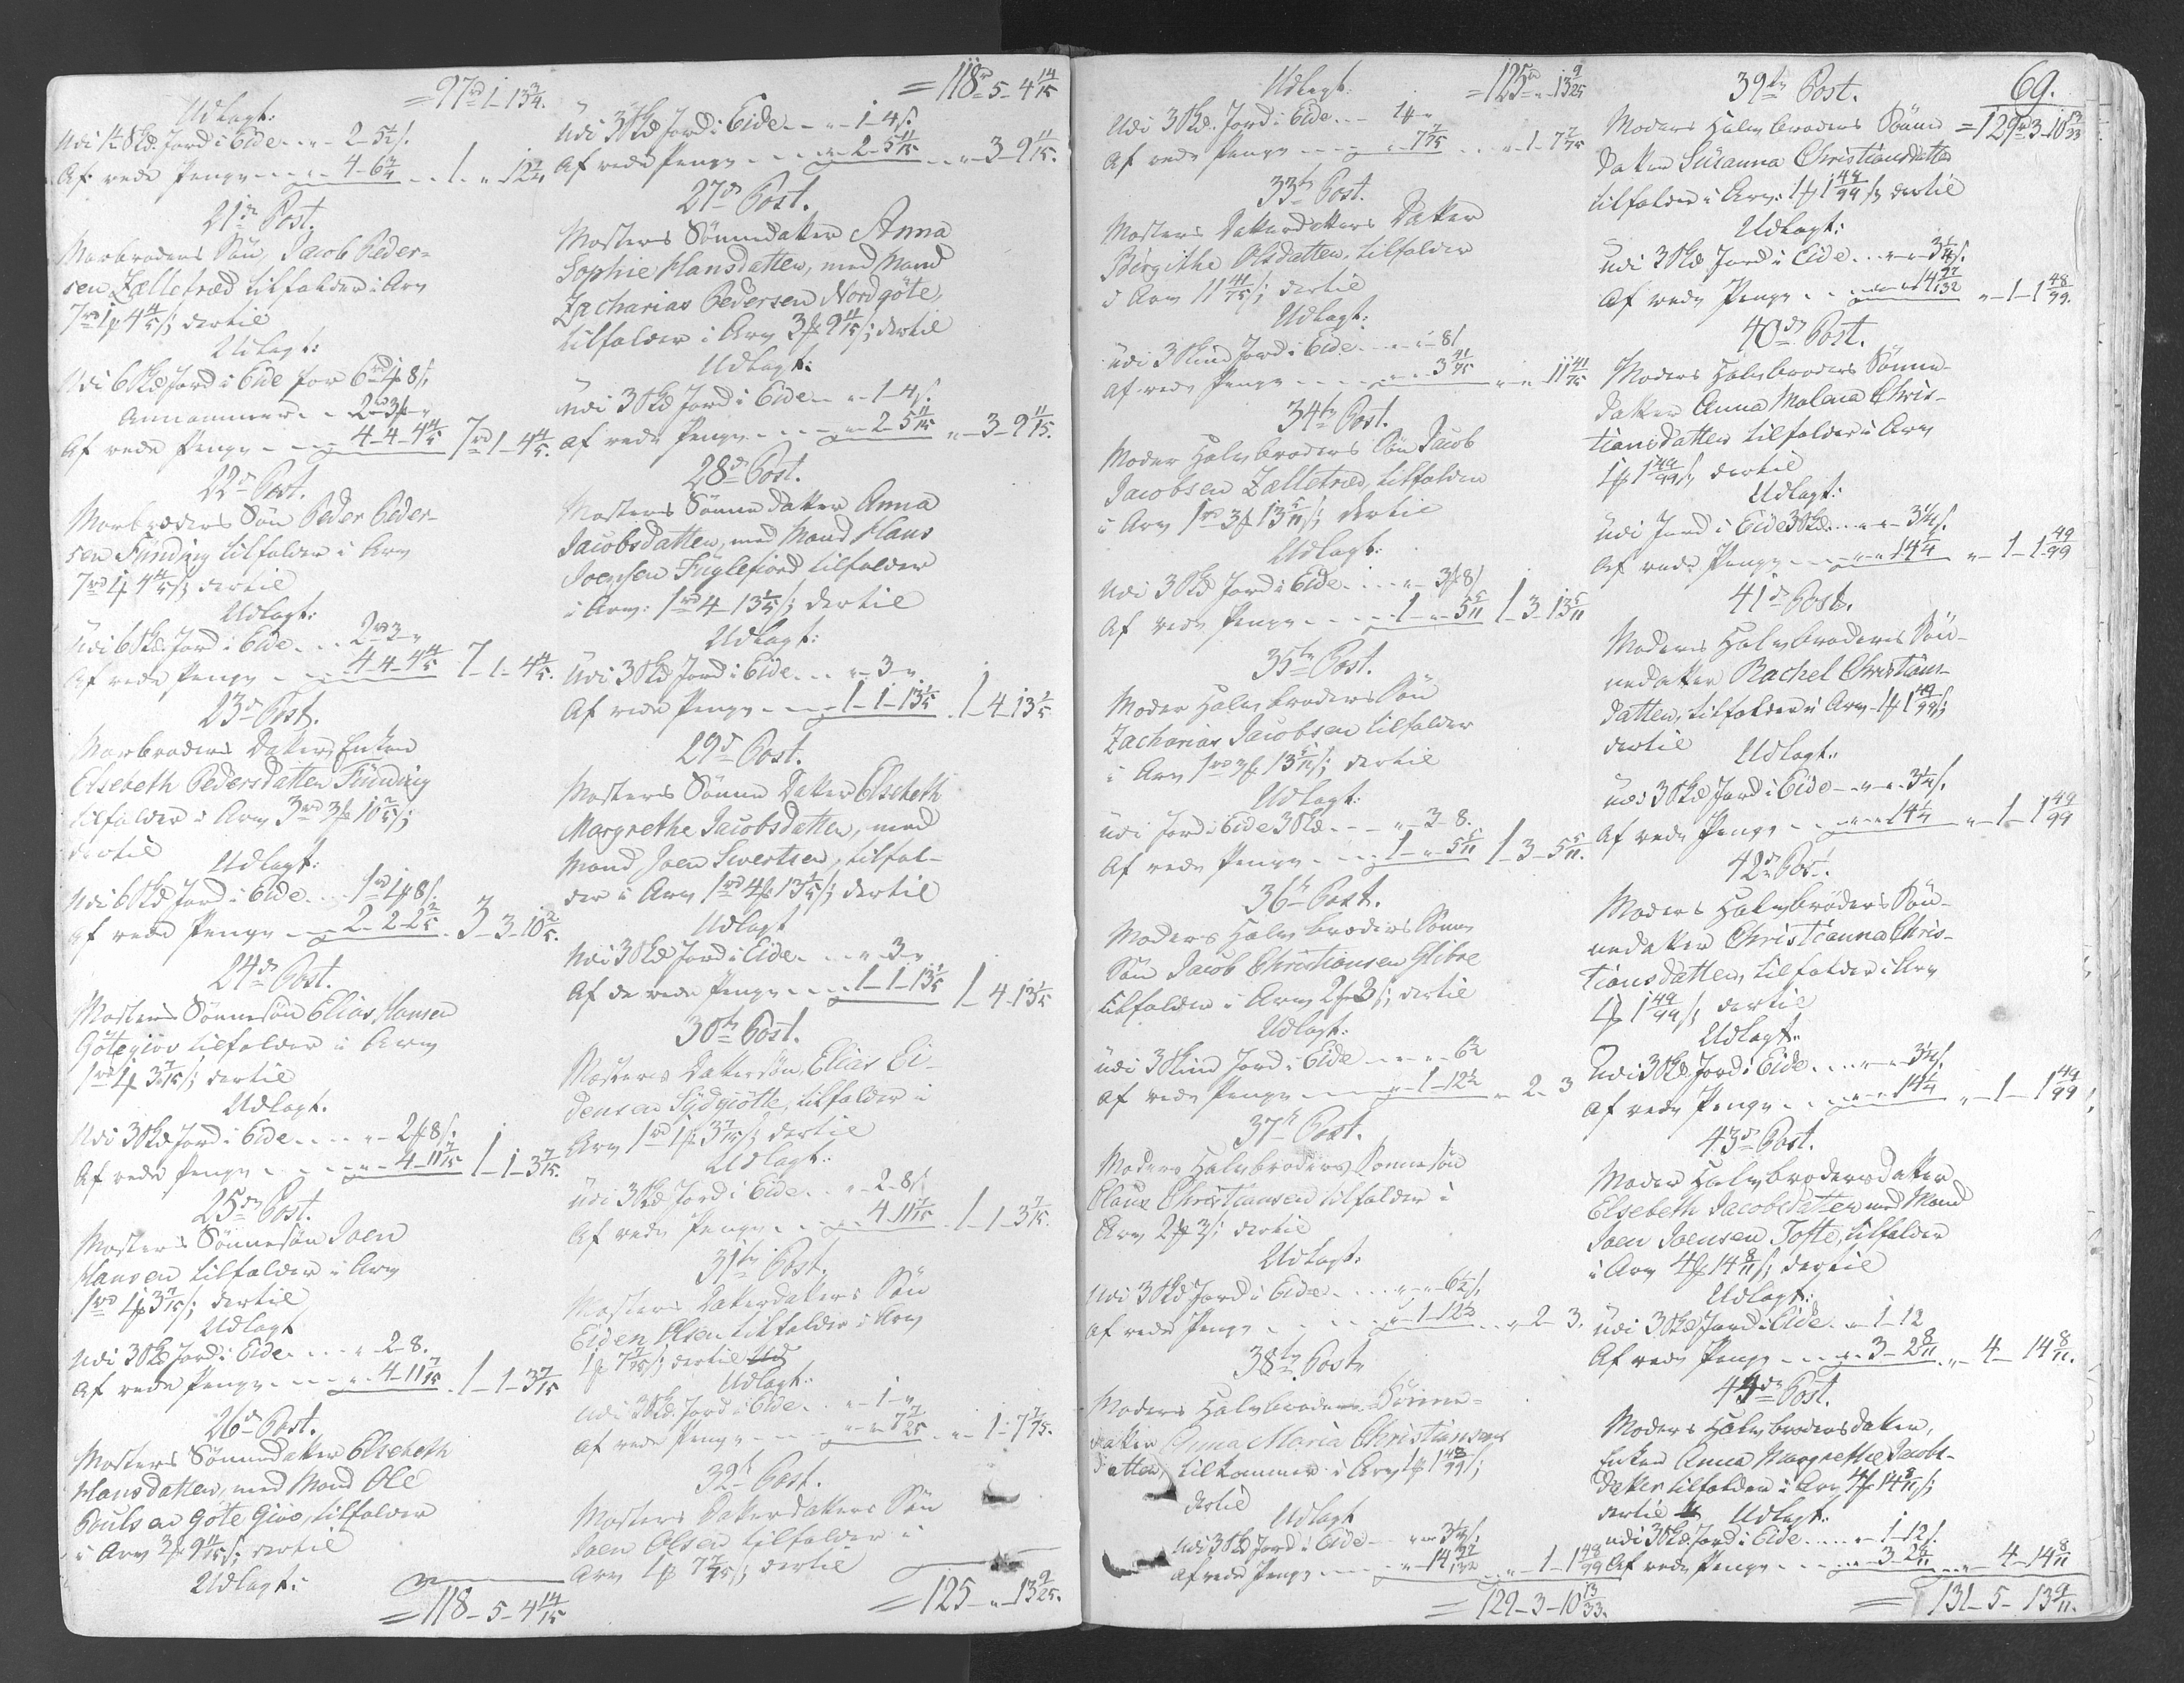 =97rd 1-13 3/4.
Udlagt:
Udi 1/2 Skd. Jord i Eide - - „ 2-5 1/2 ß.
Af rede Penge - - - 4-6 3/4 - - 1- „ 12 1/4
21de Post.
Morbroders Søn, Jacob Peder-
sen Zælletræd tilfalder i Arv
7rd 1 f 4 4/5 ß; dertil
Udlagt:
Udi 6 Skd Jord i Eide for 6rd 4f 8 ß.
Annammer - - 2rd 3 f „
Af rede Penge - - - 4-4-4 4/5 7rd 1-4 4/5.
22de Post.
Morbroders Søn Peder Peder-
sen Funding tilfalder i Arv
7rd 1f 4 4/5 ß; dertil
Udlagt:
Udi 6 Skd. Jord i Eide - - 2rd 3 - „
Af rede Penge - - 4-4-4 4/5 7-1-4 4/5.
23de Post.
Morbroders Datter, Enken
Elsebeth Pedersdatter Funding
tilfalder i Arv 3rd 3f 10 2/5 ß;
dertil
Udlagt:
Udi 6 Skd Jord i Eide - - 1rd 1f 8 ß.
af rede Penge - - 2-2-2 2/5 - 3-3-10 2/5.
24de Post.
Mosters Sønnesøn Elias Hansen
Gøtegiov tilfalder i Arv
1rd 1f 3 7/15 ß; dertil
Udlagt.
Udi 3 Skd Jord i Eide - - - „ 2f 8 ß.
Af rede Penge - - - „ 4-11 7/15 1-1-3 7/15.
25de Post.
Mosters Sønnesøn Joen
Hansen tilfalder i Arv
1rd 1f 3 7/15 ß; dertil
Udlagt
Udi 3 Skd Jord i Eide - - - „ 2-8.
af rede Penge - - - „ 4-11 7/15 - 1-1-3 7/15
26de Post.
Mosters Sønnedatter Elsebeth
Hansdatter, med Mand Ole
Poulsen Gøte Giov, tilfalder
i Arv 3f 9 11/15 ß; dertil
Udlagt:
=118-5-4 14/15
=118rd-5-4 14/15
Udi 3 Skd Jord i Eide - - „ 1-4 ß.
Af rede Penge - - - „ 2-5 11/15 - - „ 3-9 11/15.
27de Post.
Mosters Sønnedatter Anna
Sophie Hansdatter, med Mand
Zacharias Pedersen Nordgøte,
tilfalder i Arv 3f 9 11/15 ß; dertil
Udlagt:
Udi 3 Skd Jord i Eide - - „ 1-4 ß.
af rede Penge - - - „ 2-5 11/15 „ 3-9 11/15.
28de Post.
Mosters Sønnedatter Anna
Jacobsdatter, med Mand Hans
Joensen Fuglefiord tilfalder
i Arv: 1rd 4-13 1/5 ß; dertil
Udlagt:
Udi 3 Skd Jord i Eide - - „ 3 - „
Af rede Penge - - - 1-1-13 1/5 - 1-4-13 1/5
29de Post.
Mosters Sønne Datter Elsebeth
Margrethe Jacobsdatter, med
Mand Joen Sivertsen, tilfal-
der i Arv 1rd 4f 13 1/5 ß; dertil
Udlagt
Udi 3 Skd Jord i Eide - - „ 3 - „
Af de rede Penge - - - 1-1-13 1/5 1-4-13 1/5
30te Post.
Mosters Dattersøn, Elias Ei-
densen Sydgiøtte, tilfalder i
Arv 1rd 1f 3 7/15 ß; dertil
Udlagt:
Udi 3 Skd Jord i Eide - - „ 2-8 ß
Af rede Penge - - - „ 4-11 7/15 - 1-1-3 7/15.
31te Post.
Mosters Datterdatters Søn
Eiden Olsen tilfalder i Arv
1f 7 7/75 ß; dertil Ud
Udlagt:
Udi 3 Skd. Jord i Eide - - „ 1 - „
Af rede Penge - - - „ „ 7 7/75 - „ 1-7 7/75.
32te Post.
Mosters Datterdatters Søn
Joen Olsen tilfalder i
Arv 1f 7 7/75 ß; dertil
=125 - „ 13 9/25.
Udlagt =125rd „ 13 9/25
Udi 3 Skd. Jord i Eide - - 1f „
Af rede Penge - - - „ 7 7/75 - - „ 1-7 7/75
33te Post.
Mosters Datterdatters Datter
Birgithe Olsdatter, tilfalder
i Arv 11 41/75 ß; dertil
Udlagt:
Udi 3 Skind Jord i Eide - - „ „ 8 ß
Af rede Penge - - - - „ „ 3 41/75 „ „ 11 41/75
34te Post.
Moder Halvbroders Søn Jacob
Jacobsen Zælletræd, tilfalder
i Arv 1rd 3f 13 5/11 ß; dertil
Udlagt:
Udi 3 Skd Jord i Eide - - „ 3f 8 ß
Af rede Penge - - - - 1 - „ 5 5/11 1-3-13 5/11
35te Post.
Moder Halvbroders Søn
Zacharias Jacobsen tilfalder
i Arv 1rd 3f 13 5/11 ß; dertil
Udlagt:
Udi Jord i Eide 3 Skd. - - „ 3-8.
Af rede Penge - - - 1 - „ 5 5/11 1-3-5 5/11.
36te Post.
Moders Halvbroders Sønne
Søn Jacob Christiansen Glibre
tilfalder i Arv 2f 3 ß; dertil
Udlagt:
Udi 3 Skind Jord i Eide - - „ „ 6 1/2
Af rede Penge - - - - „ 1-12 1/2 „ 2-3
37te Post.
Moders Halvbroders Sønnesøn
Claus Christiansen tilfalder i
Arv 2f 3 ß; dertil
Udlagt:
Udi 3 Skd Jord i Eide - - - „ „ 6 1/2 ß.
Af rede Penge - - - - „ 1-12 1/2 - - „ 2-3.
38te Post.
Moders Halvbroders Sønne-
datter Anna Maria Christians-
datter, tilkommer i Arv 1f 1 48/99 ß;
dertil
Udlagt
Udi 3 Skd Jord i Eide - - „ „ 3 1/4 ß.
Af rede Penge - - - „ „ 14 97/132 - „ 1-1 48/99
=129-3-10 13/33.
69.
39te Post.
=129rd 3-10 13/33
Moders Halvbroders Sønne
datter Susanna Christiansdatter
tilfalder i Arv: 1f 1 48/99 ß dertil
Udlagt:
Udi 3 Skd Jord i Eide - - „ „ 3 1/4 ß.
Af rede Penge - - - „ „ 14 97/132 „ 1-1 48/99.
40de Post.
Moders Halvbroders Sønne-
datter Anna Malena Chris-
tiansdatter tilfalder i Arv
1f 1 49/99 ß; dertil
Udlagt:
Udi Jord i Eide 3 Skd. - - „ „ 3 1/4 ß.
Af rede Penge - - - „ „ 14 1/4 „ 1-1 49/99
41de Post.
Moders Halvbroders Søn-
nedatter Rachel Christians-
datter, tilfalder i Arv 1f 1 49/99 ß;
dertil Udlagt:
Udi 3 Skd Jord i Eide - „ „ 3 1/4 ß.
Af rede Penge - - - „ „ 14 1/4 „ 1-1 49/99
42de Post.
Moders Halvbroders Søn-
nedatter Christianna Chris-
tiansdatter, tilfalder i Arv
1f 1 49/99 ß; dertil
Udlagt:
Udi 3 Skd Jord i Eide - - - „ „ 3 1/4 ß.
Af rede Penge - - - „ „ 14 1/4 „ 1-1 49/99
43de Post.
Moder Halvbrodersdatter
Elsebeth Jacobsdatter med Mand
Joen Joensen Tofte, tilfalder
i Arv 4f 14 8/11 ß; dertil
Udlagt:
Udi 3 Skd Jord i Eide - „ 1-12
Af rede Penge - - - „ 3-2 8/11 „ 4-14 8/11.
44de Post.
Moders Halvbrodersdatter,
Enken Anna Margrethe Jacobs-
datter tilfalder i Arv 4f 14 8/11 ß;
dertil Udlagt:
Udi 3 Skd. Jord i Eide - - - „ 1-12 ß.
Af rede Penge - - - „ 3-2 8/11 - „ 4-14 8/11
=131-5-13 9/11.